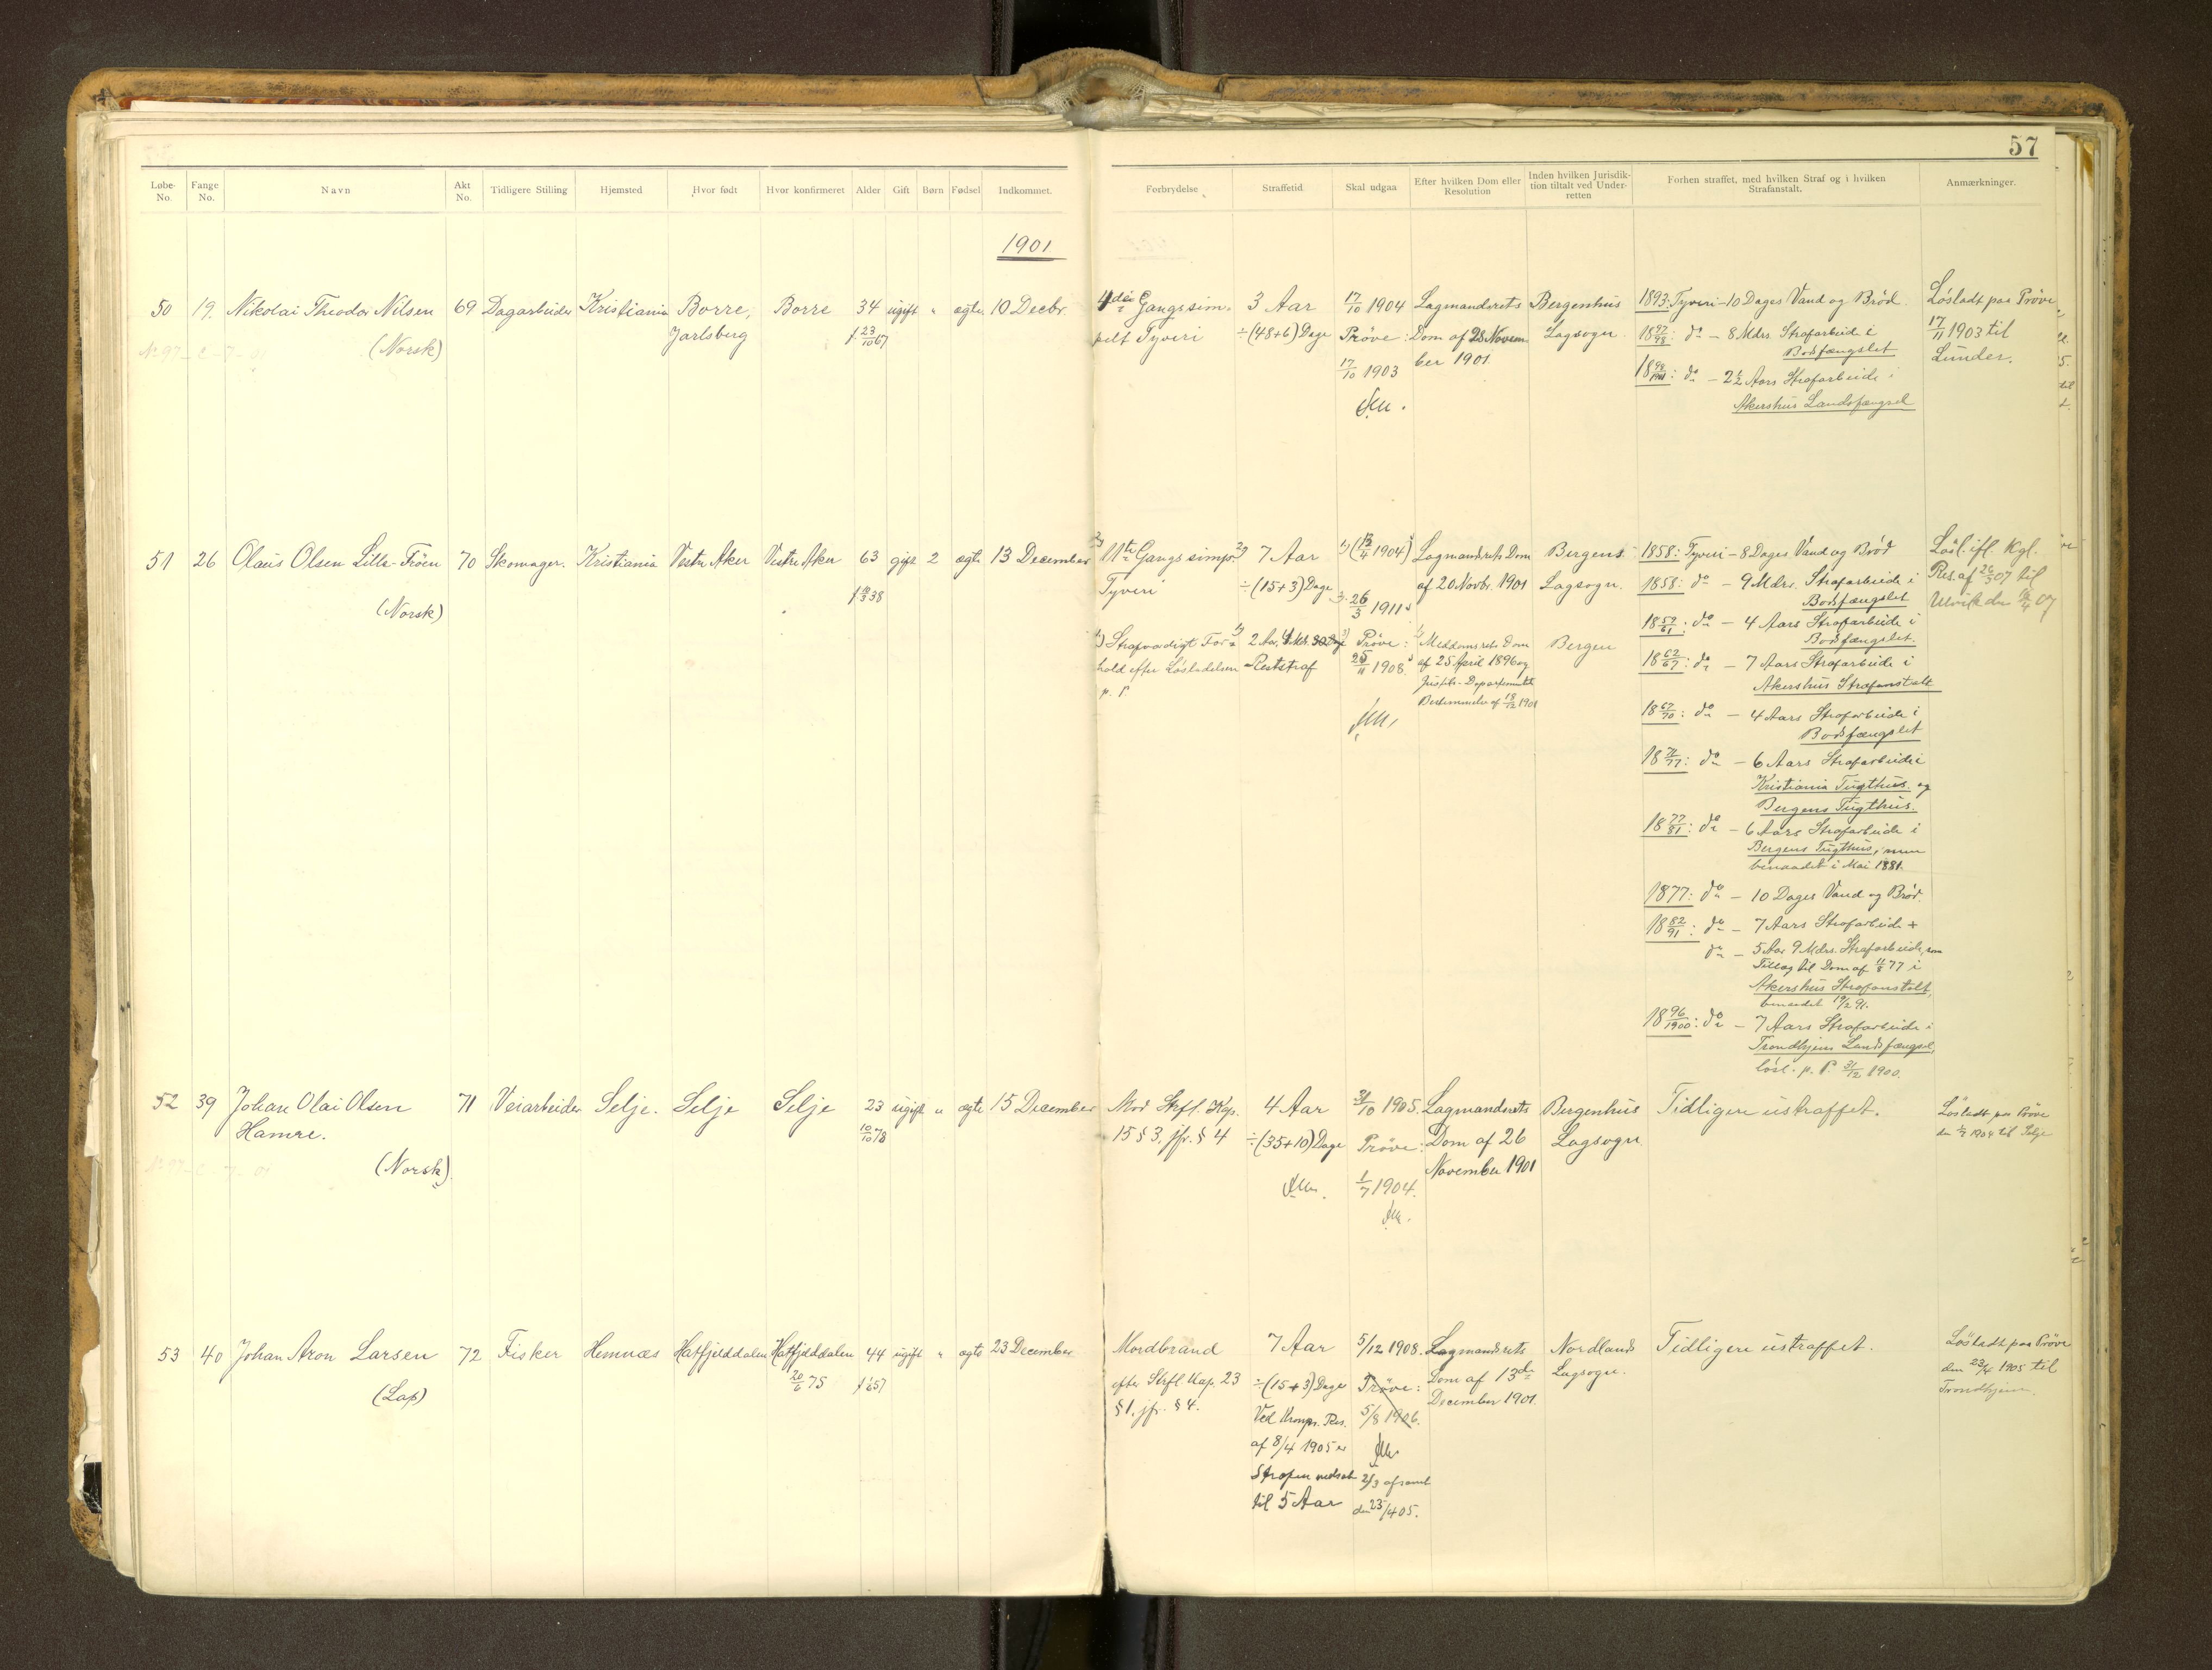 57
Løbe-No.
Fange No.
Navn
Akt No.
Tidligere Stilling
Hjemsted
Hvor født
Hvor konfirmeret
Alder
Gift
Børn
Fødsel
Indkommet.
Forbrydelse
Straffetid
Skal udgaa
Efter hvilken Dom eller Resolution
Inden hvilken Jurisdiktion tiltalt ved Underretten
Forhen straffet, med hvilken Straf og i hvilken Strafanstalt.
Anmærkninger.
1901
50 19. Nikolai Theodor Nilsen 69 Dagarbeider Kristiania Borre, Borre 34 ugift " ægte 10 Decbr.
(Norsk) Jarlsberg f. 23/10 67
4de Gangs sim-
pelt Tyveri
3 Aar
÷(48+6) Dage
17/10 1904
Prøve:
17/10 1903
Lagmandsrets
Dom af 28 Novem
ber 1901
Bergenhus
Lagsogn.
1893: Tyveri - 10 Dages Vand og Brød.
18 97/98: do - 8 Mdrs. Strafarbeide i
Bodsfængslet
18 98/1901: do - 2½ Aars Strafarbeide i
Akershus Landsfængsel
Løsladt paa Prøve
17/11 1903 til
Lunder.
51 26 Olaus Olsen Lille-Frøen 70 Skomager. Kristiania Vestre Aker Vestre Aker 63 gift 2 ægte 13 December
(Norsk) f. 10/3 38
2) 11te Gangs simp.
Tyveri
1) Strafværdigt For-
hold efter Løsladelsen
p. P
2) 7 Aar
÷(15+3) Dage
1) 2 Aar, 4 Mdr. 30 Dage
Reststraf
1) (13/4 1904)
26/3 1911
Prøve:
25/11 1908
Lagmandsrets Dom
af 20 Novbr. 1901
1) Meddomsrets Dom
af 25 April 1896 og
Justits-Departementets
Bestemmelse af 18/12 1901
Bergens
Lagsogn.
Bergen
1858: Tyveri - 8 Dages Vand og Brød
1858: do - 9 Mdrs. Strafarbeide i
Bodsfængslet
18 59/61: do - 4 Aars Strafarbeide i
Bodsfængslet.
18 62/67: do - 7 Aars Strafarbeide i
Akershus Strafanstalt
18 67/70: do - 4 Aars Strafarbeide i
Bodsfængslet
18 71/77: do - 6 Aars Strafarbeide i
Kristiania Tugthus. og
Bergens Tugthus.
18 77/81: do - 6 Aars Strafarbeide i
Bergens Tugthus,
benaadet i Mai 1881.
1877: do - 10 Dages Vand og Brød.
18 82/91: do - 7 Aars Strafarbeide +
do - 5 Aar 9 Mdrs. Strafarbeide, som
Tillæg til Dom af 11/8 77 i
Akershus Strafanstalt,
benaadet 19/2 91.
18 96/1900: do - 7 Aars Strafarbeide i
Trondhjems Landsfængsel,
løsl. p. P. 31/12 1900.
Løsl. ifl. Kgl.
Res. af 26/3 07 til
Ulvik den 16/4 07
52 39 Johan Olai Olsen 71 Veiarbeider Selje. Selje Selje 23 ugift " ægte 15 December
Hamre. 10/10 78
(Norsk).
Mod Strfl. Kap.
15 § 3, jfr. § 4
4 Aar
÷(35+10) Dage
31/10 1905.
Prøve:
1/7 1904.
Lagmandsrets
Dom af 26
November 1901
Bergenhus
Lagsogn
Tidligere ustraffet.
Løsladt paa Prøve
den 1/7 1904 til Selje
53 40 Johan Aron Larsen 72 Fisker Hemnæs Hatfjelddalen Hatfjelddalen 44 ugift " ægte 23 December
(Lap) 20/6 75 f. 1/6 57
Mordbrand
efter Strfl. Kap. 23
§ 1, jfr. § 4.
7 Aar
÷(15+3) Dage
Ved Kronpr. Res.
af 8/4 1905 er
Straffen nedsat
til 5 Aar
5/12 1908.
Prøve:
5/8 1906.
2/3 afsonet
den 23/4 05.
Lagmandsrets
Dom af 13de
December 1901.
Nordlands
Lagsogn.
Tidligere ustraffet.
Løsladt paa Prøve
den 23/4 1905 til
Trondhjem.